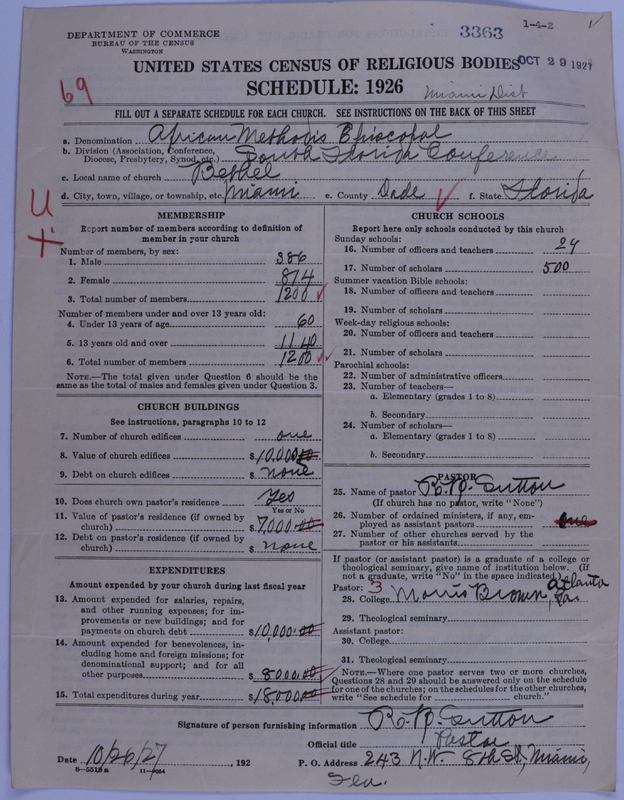 DEPARTMENT OF COMMERCE
BUREAU OF THE CENSUS
WASHINGTON
3363
1-4-2
OCT 29 1927
UNITED STATES CENSUS OF RELIGIOUS BODIES
SCHEDULE: 1926
69
Miami Dist
FILL OUT A SEPARATE SCHEDULE FOR EACH CHURCH. SEE INSTRUCTIONS ON THE BACK OF THIS SHEET
a. Denomination African Methodis Episcopal
b. Division (Association, Conference, Diocese, Presbytery, Synod, etc.) South Florida Conference
c. Local name of church Bethel
d. City, town, village, or township, etc. Miami e. County Dade f. State Florida
U
+
MEMBERSHIP
Report number of members according to definition of
member in your church
Number of members, by sex:
1. Male 386
2. Female 814
3. Total number of members 1200
Number of members under and over 13 years old:
4. Under 13 years of age 60
5. 13 years old and over 1140
6. Total number of members 1200
NOTE.—The total given under Question 6 should be the
same as the total of males and females given under Question 3.
CHURCH BUILDINGS
See instructions, paragraphs 10 to 12
7. Number of church edifices one
8. Value of church edifices $10,000.00
9. Debt on church edifices $ none
10. Does church own pastor's residence Yes
Yes or No
11. Value of pastor's residence (if owned by
church) $7,000.00
12. Debt on pastor's residence (if owned by
church) $ none
EXPENDITURES
Amount expended by your church during last fiscal year
13. Amount expended for salaries, repairs,
and other running expenses; for im-
provements or new buildings; and for
payments on church debt $10,000.00
14. Amount expended for benevolences, in-
cluding home and foreign missions; for
denominational support; and for all
other purposes $8000.00
15. Total expenditures during year $18,000.00
CHURCH SCHOOLS
Report here only schools conducted by this church
Sunday schools:
16. Number of officers and teachers 29
17. Number of scholars 500
Summer vacation Bible schools:
18. Number of officers and teachers
19. Number of scholars
Week-day religious schools:
20. Number of officers and teachers
21. Number of scholars
Parochial schools:
22. Number of administrative officers
23. Number of teachers—
a. Elementary (grades 1 to 8)
b. Secondary
24. Number of scholars—
a. Elementary (grades 1 to 8)
b. Secondary
PASTOR
25. Name of pastor Sutton
(If church has no pastor, write "None")
26. Number of ordained ministers, if any, em-
ployed as assistant pastors one
27. Number of other churches served by the
pastor or his assistants
If pastor (or assistant pastor) is a graduate of a college or
theological seminary, give name of institution below. (If
not a graduate, write "No" in the space indicated)
Pastor: 3 Atlanta
28. College Morris Brown, Ga.
29. Theological seminary
Assistant pastor:
30. College
31. Theological seminary
NOTE.—Where one pastor serves two or more churches,
Questions 28 and 29 should be answered only on the schedule
for one of the churches; on the schedules for the other churches,
write "See schedule for church."
Signature of person furnishing information Sutton
Official title Pastor
Date 10/26/27, 192 P. O. Address 243 N.W. 8th St, Miami,
6-5518a 11-9054